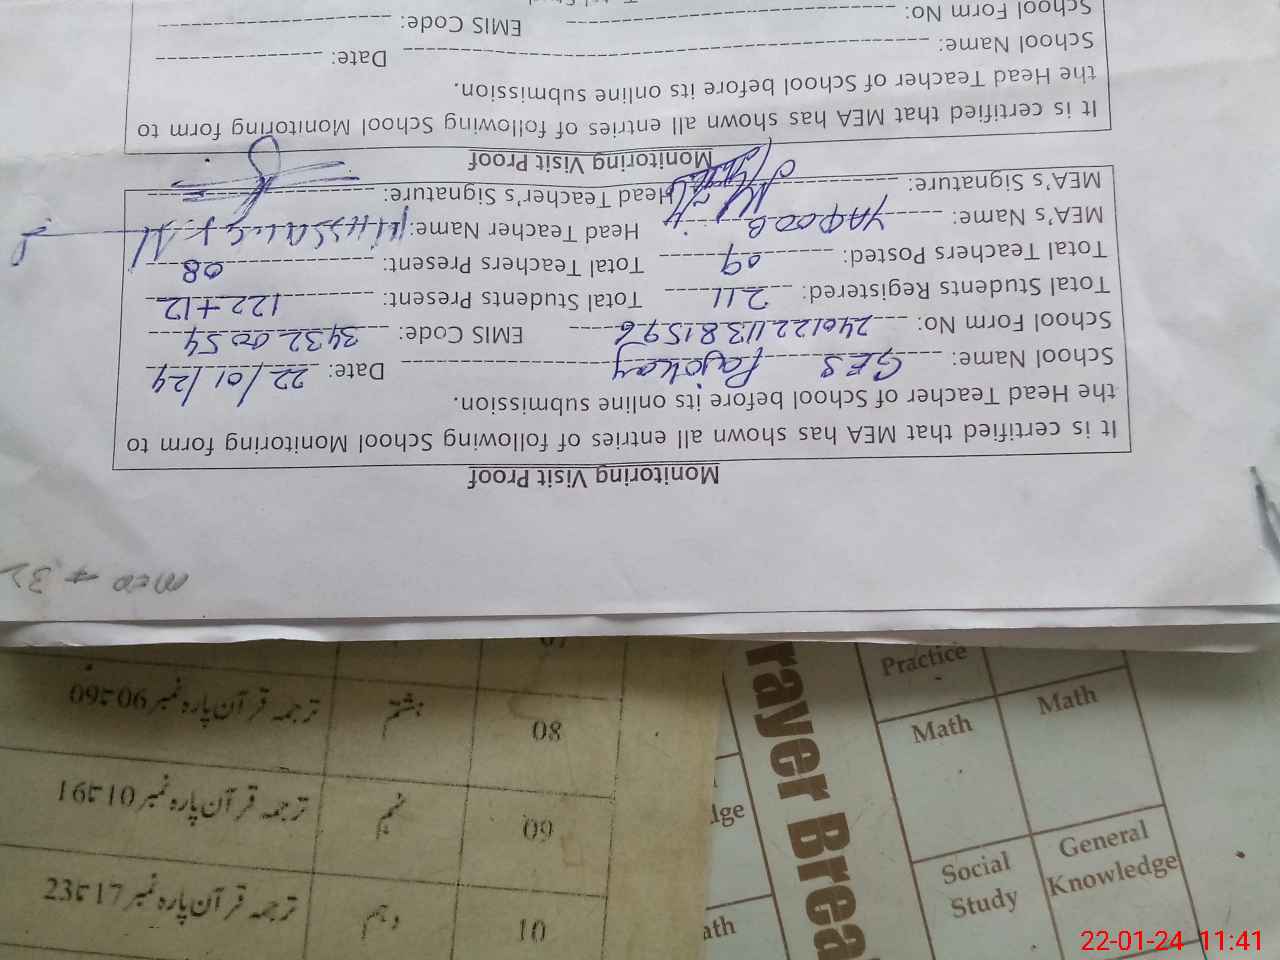 Monitoring Visit Proof
It is certified that MEA has shown all entries of following of School Monitoring form to
the Head Teacher of School before its online submission.
School Name: GES Pajokay Date: 22/01/24
School Form No: EMIS Code: 34320054
Total Students Registered: 211 Total Students Present: 122+12
Total Teachers Posted: 09 Total Teachers Present: 08
MEA's Name: YAQOOB Head Teacher Name:
MEA's Signature: Head Teacher's Signature:
Monitoring Visit Proof
It is certified that MEA has shown all entries of following of School Monitoring form to
the Head Teacher of School before its online submission.
School Name: Date:
School Form No: EMIS Code:
08 ہشتم ترجمہ قرآن پارہ نمبر 06 تا 09
09 نہم ترجمہ قرآن پارہ نمبر 10 تا 16
10 دہم ترجمہ قرآن پارہ نمبر 17 تا 23
rayer Brea
Practice
Math Math
Social Study General Knowledge
22-01-24 11:41